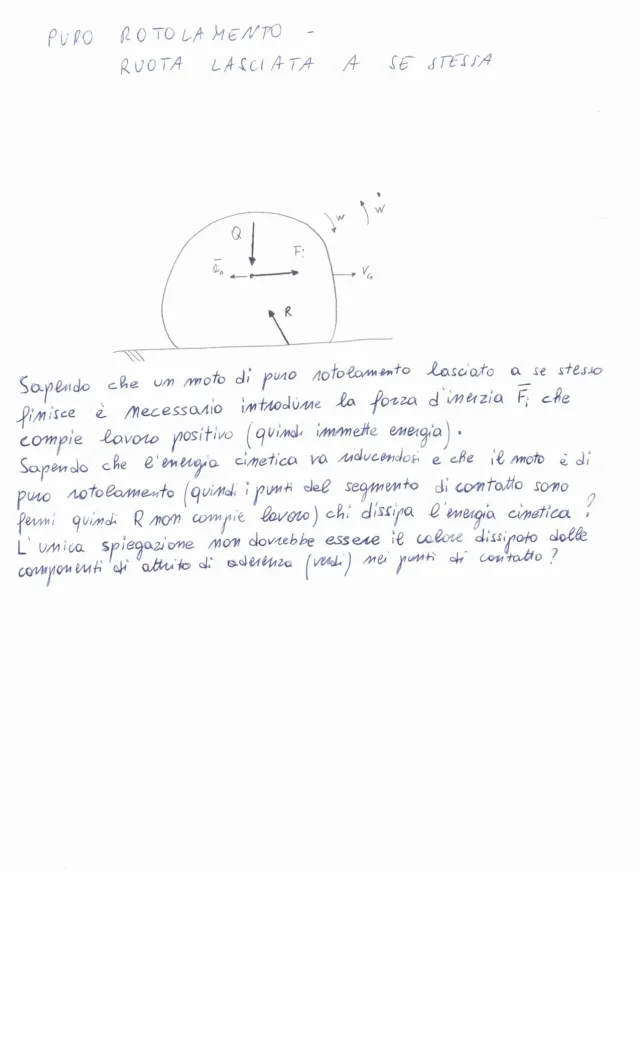 PURO ROTOLAMENTO -
RUOTA LASCIATA A SE STESSA
w ẇ
Q
Fi
VG
R
Sapendo che un moto di puro rotolamento lasciato a se stesso
finisce è necessario introdurre la forza d'inerzia Fi che
compie lavoro positivo (quindi immette energia).
Sapendo che l'energia cinetica va riducendosi e che il moto è di
puro rotolamento (quindi i punti del segmento di contatto sono
fermi quindi R non compie lavoro) chi dissipa l'energia cinetica ?
L'unica spiegazione non dovrebbe essere il calore dissipato dalle
componenti di attrito di aderenza (verdi) nei punti di contatto ?